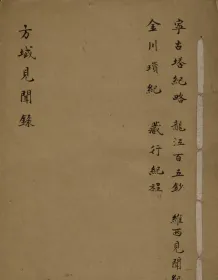 寧古塔紀略 龍江百五鈔 維西見聞紀
金川瑣紀 藏行紀程
方域見聞錄